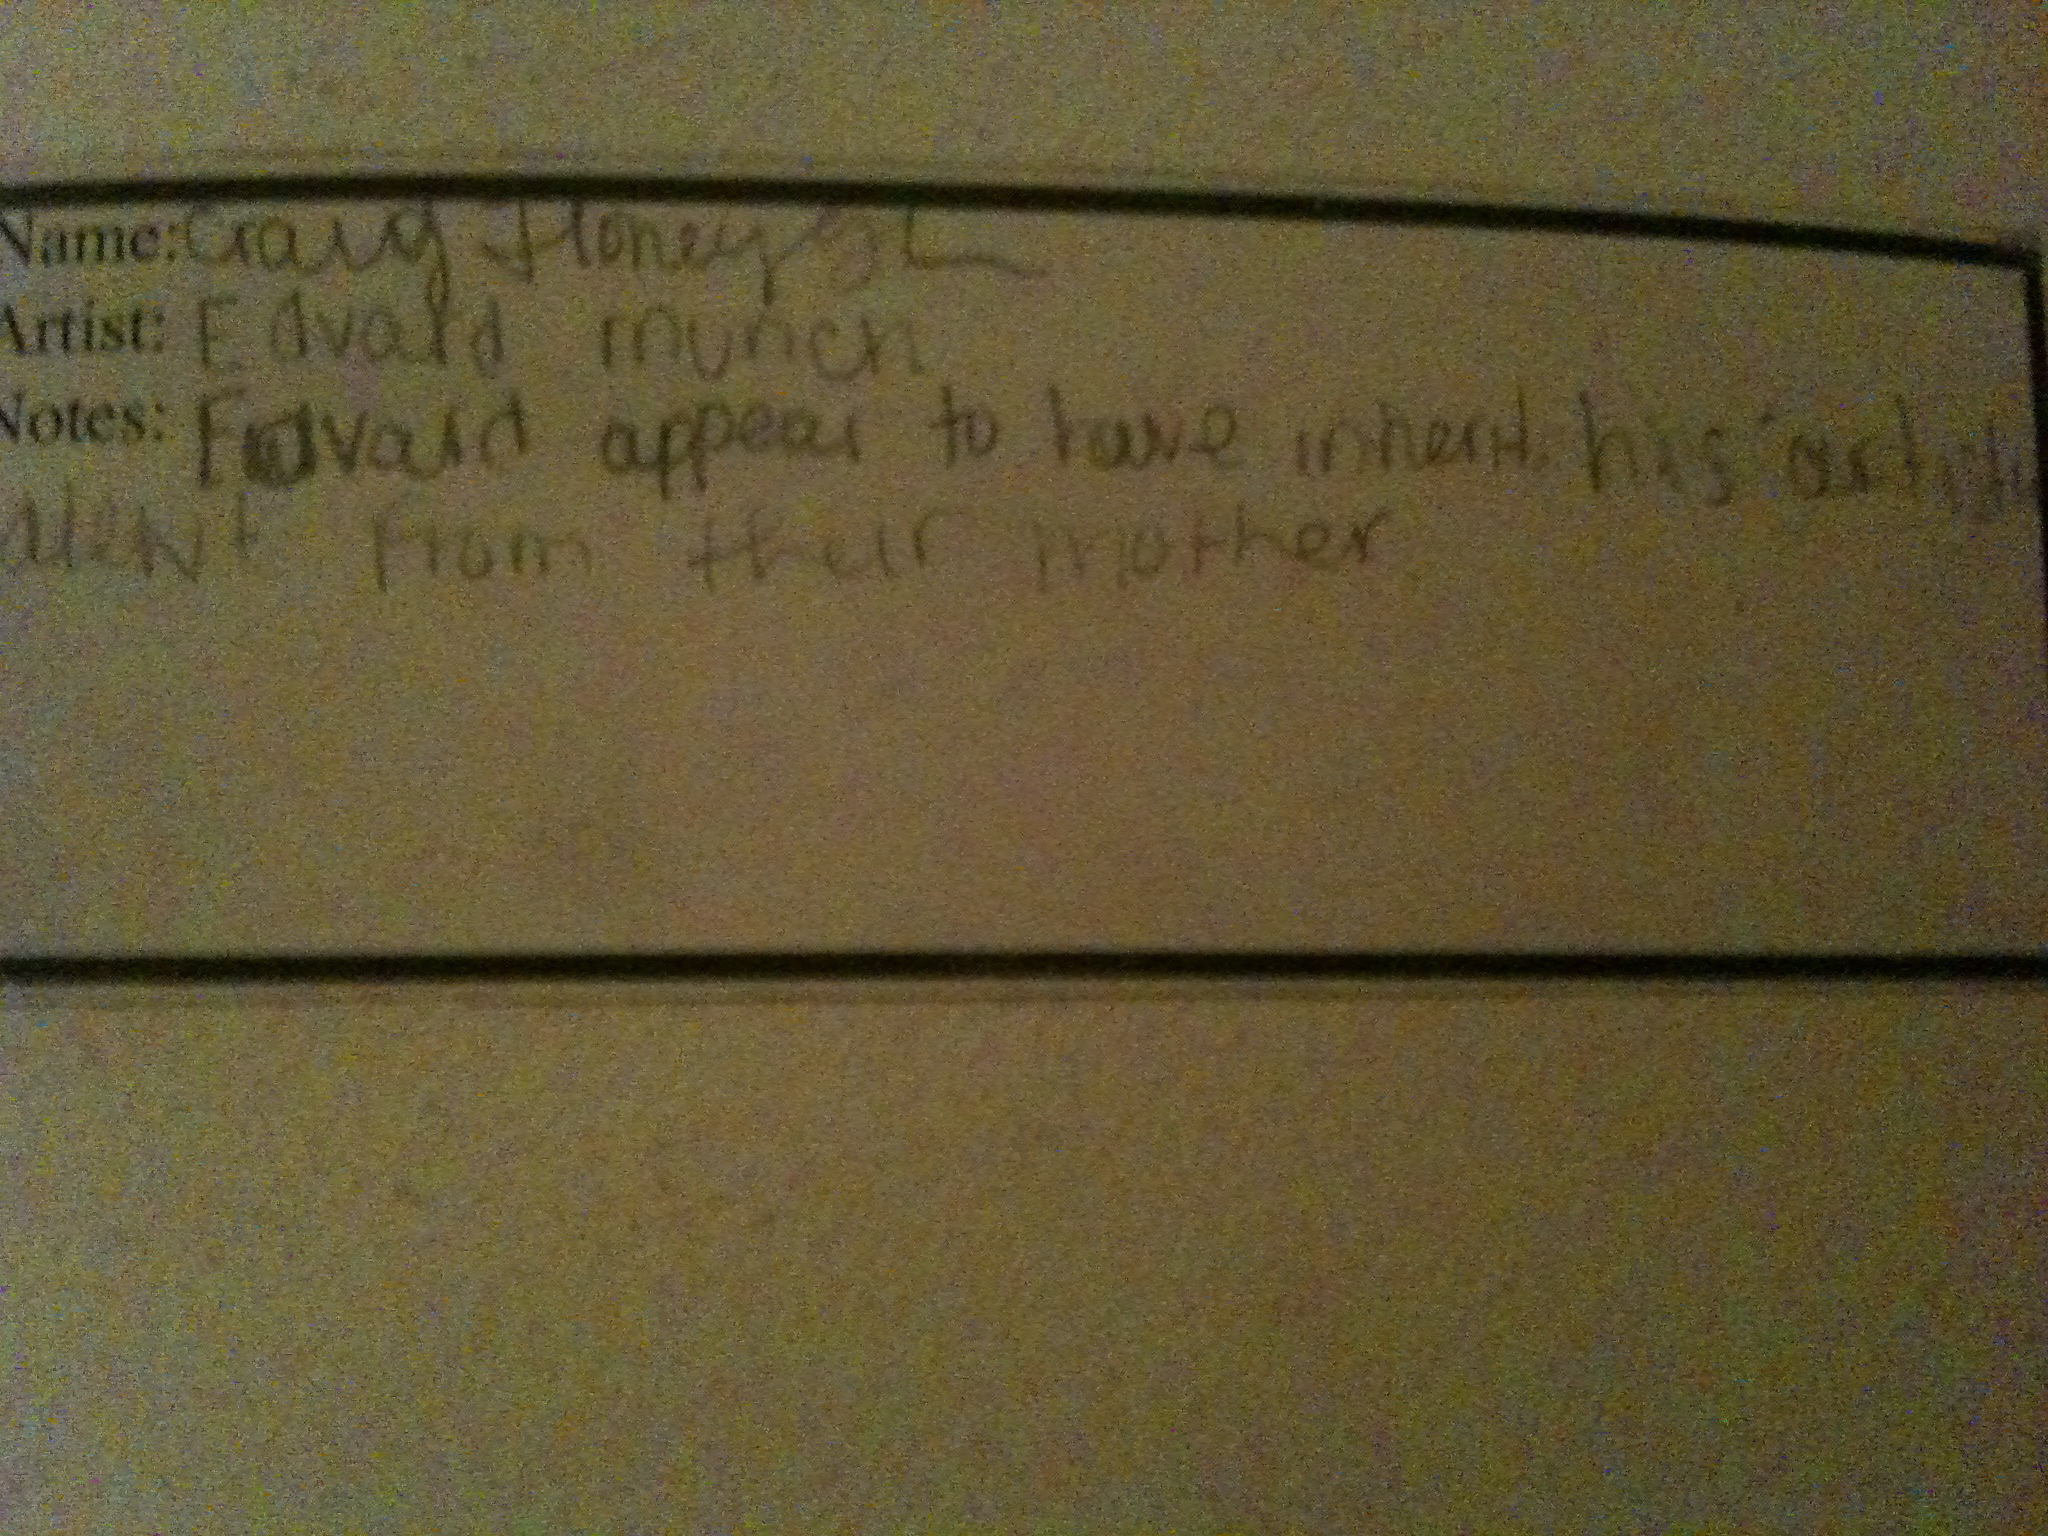 Name: Craig Honey
Artist: Edvard munch
Notes: Edvard appear to have inherit his
from their mother